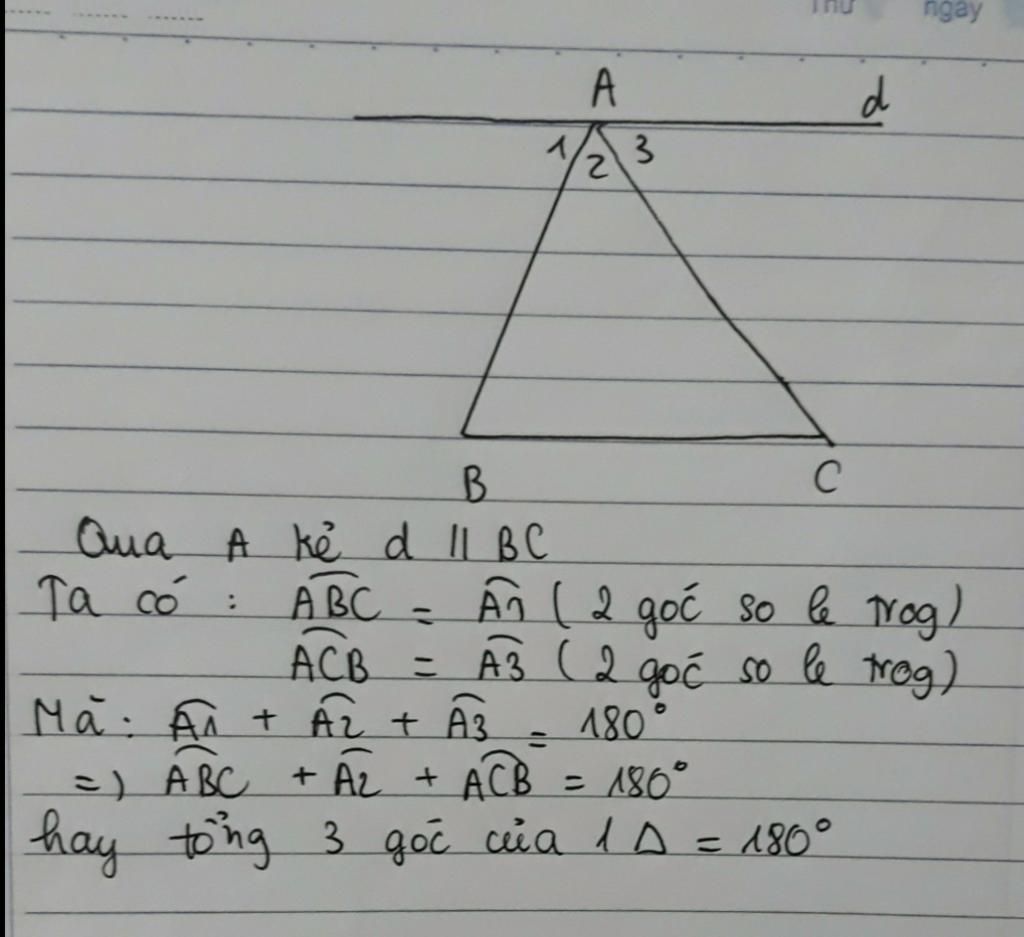 Thứ ngày
A d
1 2 3
B C
Qua A kẻ d // BC
Ta có : ABC = A1 ( 2 góc so le trog)
ACB = A3 ( 2 góc so le trog)
Mà : A1 + A2 + A3 = 180°
=) ABC + A2 + ACB = 180°
hay tổng 3 góc của 1 Δ = 180°